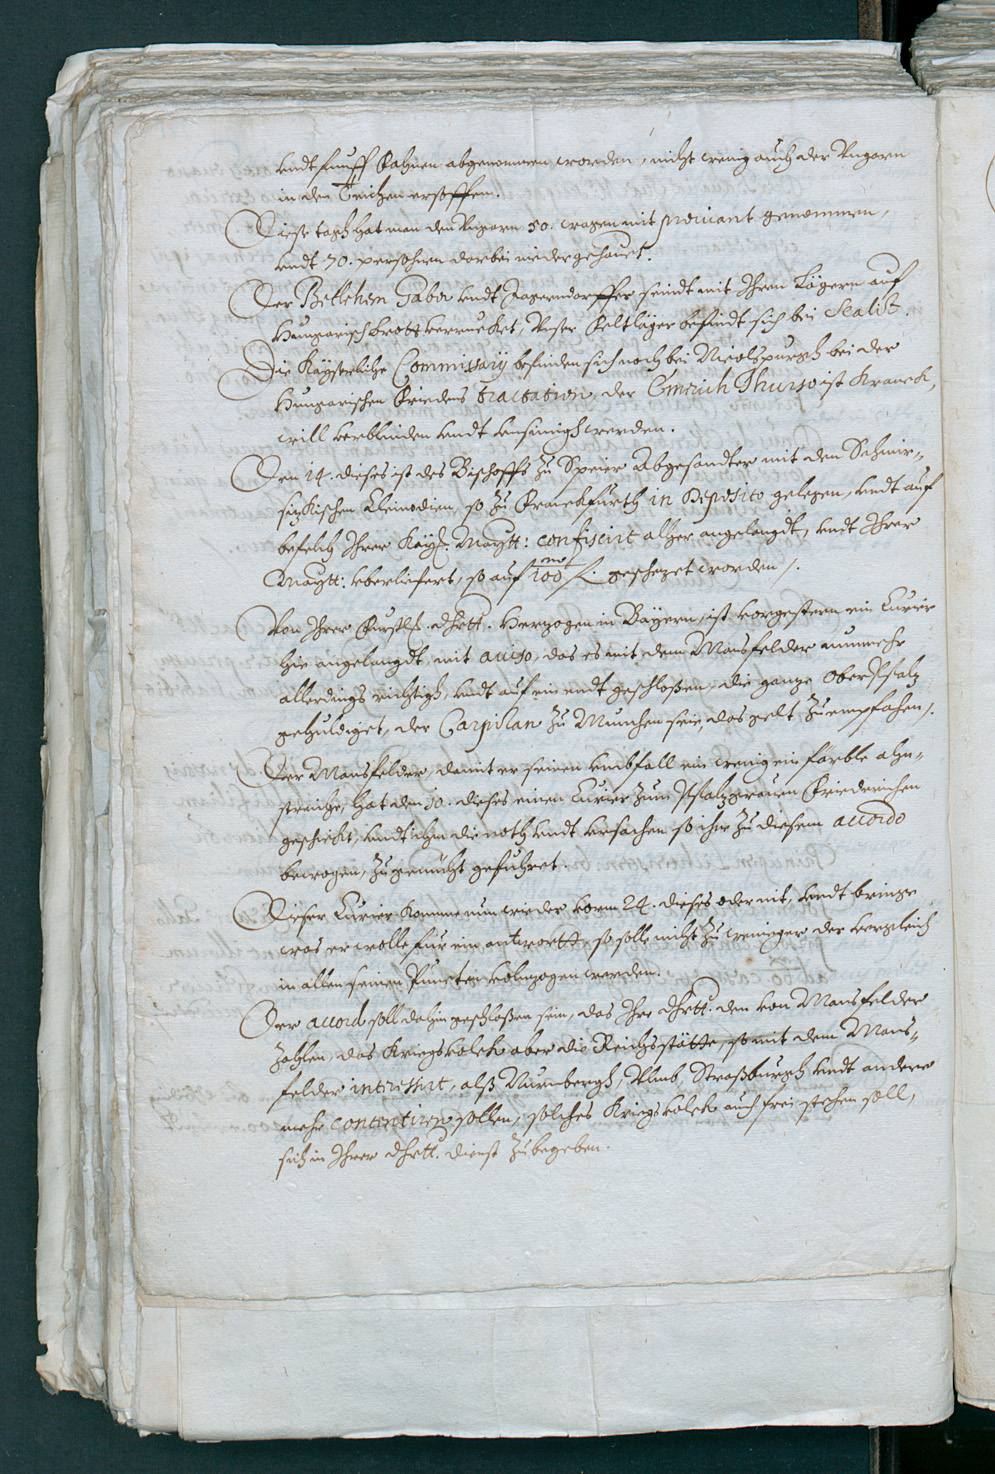 undt fünff Fahnen abgenommen worden, nicht wenig auch der Ungarn
in den Teichen ersoffen.
Diese tagh hat man den Ungarn 50. wagen mit proviant genommen,
undt 70. persohnen darbei niedergehauet.
Der Betlehem Gabor undt Jagerndorffer seindt mit Ihrem Lägern auf
Hungarisch brott verrucket, Unser Feltläger befindt sich bei Scalitz.
Die Kayserliche Commissarij befinden sich noch bei Nicolspurgh bei der
Hungarischen Friedens tractation, der Emrich Thurso ist Kranck,
will verblinden undt unsinnigh werden.
Den 14. dieses ist des Bischoffs zu Speier Abgesandter mit den Schmir-
sizkischen Cleinodien, so zu Franckfurth in deposito gelegen, undt auf
befelch Ihrer Kays. Maytt: confiscirt alher angelangdt, undt Ihrer
Maytt: überliefert, so auf 100 m fl. geschezet worden /.
Von Ihrer Fürstl. dhrtt. Herzogen in Bayern, ist vorgestern ein Curier
hie angelangdt mit auiso, das es mit dem Mansfelder nunmehr
allerdings richtigh, undt auf ein endt geschloßen, die ganze Oberpfalz
gehuldiget, der Carpilan zu Munchen seie, das gelt zu empfahen /.
Der Mansfelder, damit er seinen umbfall ein wenig ein färble ahn-
streiche, hat den 10. dieses einen Curier zum Pfalzgrauen Friederichen
geschickt, undt ihm die noth undt ursachen so ihne zu diesem accordo
bewogen, zu gemüht geführet.
Dieser Curier komme nun wieder vorm 24. dieses oder nit, undt bringe
was er wolle für ein antwortt, so solle nicht zu weniger der vergleich
in allen seinen Puncten volnzogen werden.
Der accord soll dahin geschloßen sein, das Ihre dhrtt. den von Mansfelder
zahlen, das Kriegsvolck aber die Reichsstätte, so mit dem Mans-
felder interessirt, alß Nürnbergh, Ulmb, Straßburgh undt andere
mehr contentiren sollen, solches Kriegsvolck auch frei stehen soll,
sich in Ihrer dhrtt. dienst zu begeben.